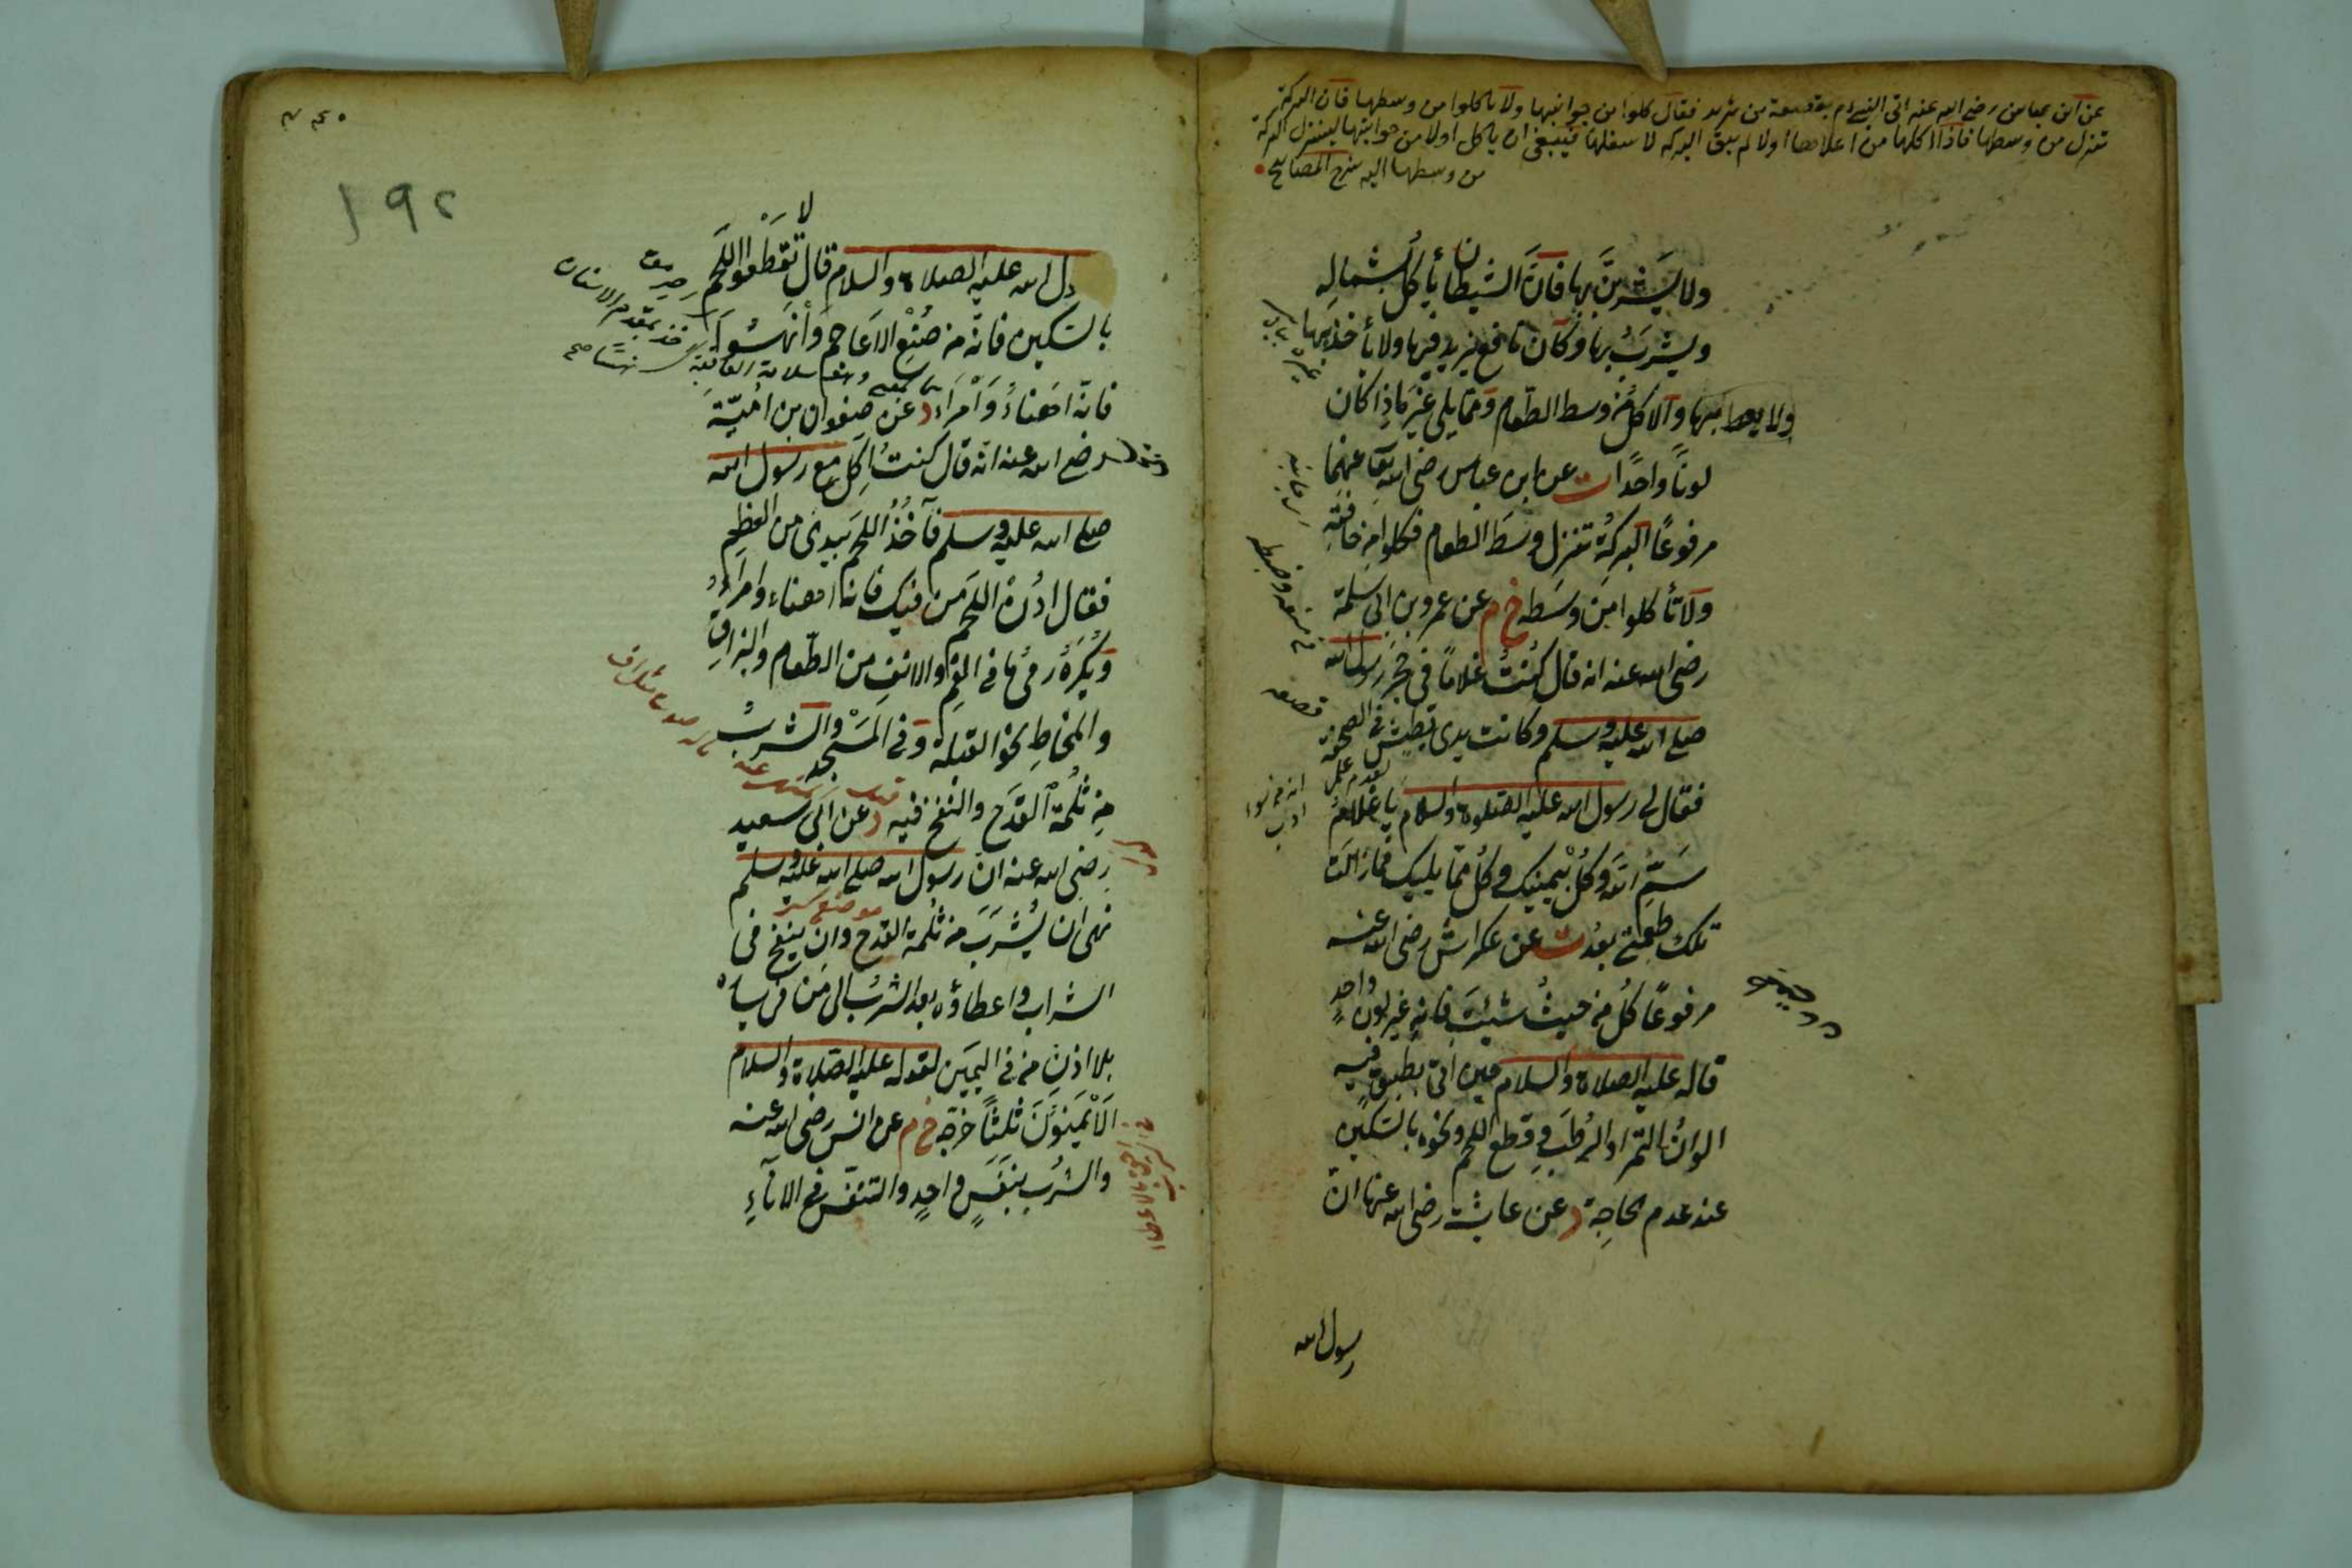 عن ابن عباس رضى الله عنه اتى النبى عم بقصعة من ثريد فقال كلوا من جوانبها ولا تاكلوا من وسطها فان البركة
تنزل من وسطها فاذا اكلها من اعلاها اولا لم يبق البركه لاسفلها فينبغى ان ياكل اولا من جوانبها لينزل البركة
من وسطها اليه شرح المصابيح
ولا يشربن بها فان الشيطان يأكل بشماله
ويشرب بها وكان نافع يزيد فيها ولا يأخذ بها
ولا يعط بها والاكل من وسط الطعام ومما يلي غيره اذا كان
لونا واحدا ت عن ابن عباس رضى الله تعا عنهما
مرفوعا البركة تنزل وسط الطعام فكلوا من حافته
ولا تأكلوا من وسطه خ م عن عمرو بن ابى سلمة
رضى الله عنه انه قال كنت غلاما فى حجر رسول الله
صلى الله عليه وسلم وكانت يدى تطيش فى الصحفة
قصعه
فقال لى رسول الله عليه الصلوة والسلام يا غلام
سم الله وكل بيمينك وكل مما يليك فما زالت
تلك طعمتى بعد ت عن عكراش رضى الله عنه
مرفوعا كل من حيث شئت فانه غير لون واحد
قاله عليه الصلاة والسلام حين اتى بطبق فيه
الوان التمر او الرطب وقطع اللحم ونحوه بالسكين
عند عدم الحاجة د عن عائشة رضى الله عنها ان
رسول الله
١٩٢
ول الله عليه الصلاة والسلام قال لا تقطعوا اللحم
بالسكين فانه من صنع الاعاجم وانهسوا
فانه اهناء وامراء د عن صفوان بن امية
رضى الله عنه انه قال كنت اكل مع رسول الله
صلى الله عليه وسلم فآخذ اللحم بيدى من العظم
فقال ادن اللحم من فيك فانه اهناء وامراء
ويكره رمى ما فى الفم والانف من الطعام والبزاق
والمخاط نحو القبلة وفى المسجد والشرب
من ثلمة القدح والنفخ فيه د عن ابى سعيد
رضى الله عنه ان رسول الله صلى الله عليه وسلم
نهى ان يشرب من ثلمة القدح وان ينفخ فى
الشراب واعطاؤه بعد الشرب الى من فى يساره
بلا اذن من فى اليمين لقوله عليه الصلاة والسلام
الايمنون ثلثا خرجه خ م عن انس رضى الله عنه
والشرب بنفس واحد والتنفس فى الاناء